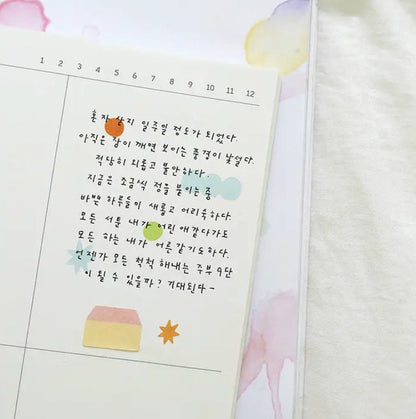 1 2 3 4 5 6 7 8 9 10 11 12
혼자 살지 일주일 정도가 되었다.
아직은 잠이 깨면 보이는 풍경이 낯설다.
적당히 외롭고 불안하다.
지금은 조금씩 정을 붙이는 중
바쁜 하루들이 새롭고 어리둑하다.
모든 서툰 내가 어린 애같다가도
모든 하는 내가 어른같기도하다.
언젠가 모든 척척 해내는 주부 9단
이 될 수 있을까? 기대된다-